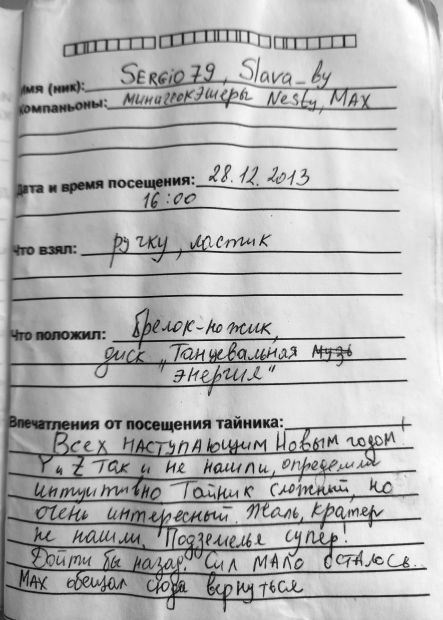 Имя (ник): SERGIO79, Slava_by
Компаньоны: минигеокэшеры Nesty, MAX
Дата и время посещения: 28.12.2013
16:00
Что взял: ручку, ластик
Что положил: брелок-ножик,
диск „Танцевальная музы
энергия“
Впечатления от посещения тайника:
Всех наступающим Новым годом!
Y и Z так и не нашли, определили
интуитивно Тайник сложный, но
очень интересный. Жаль, кратер
не нашли. Подземелья супер!
Дойти бы назад. Сил мало осталось..
MAX обещал сюда вернуться